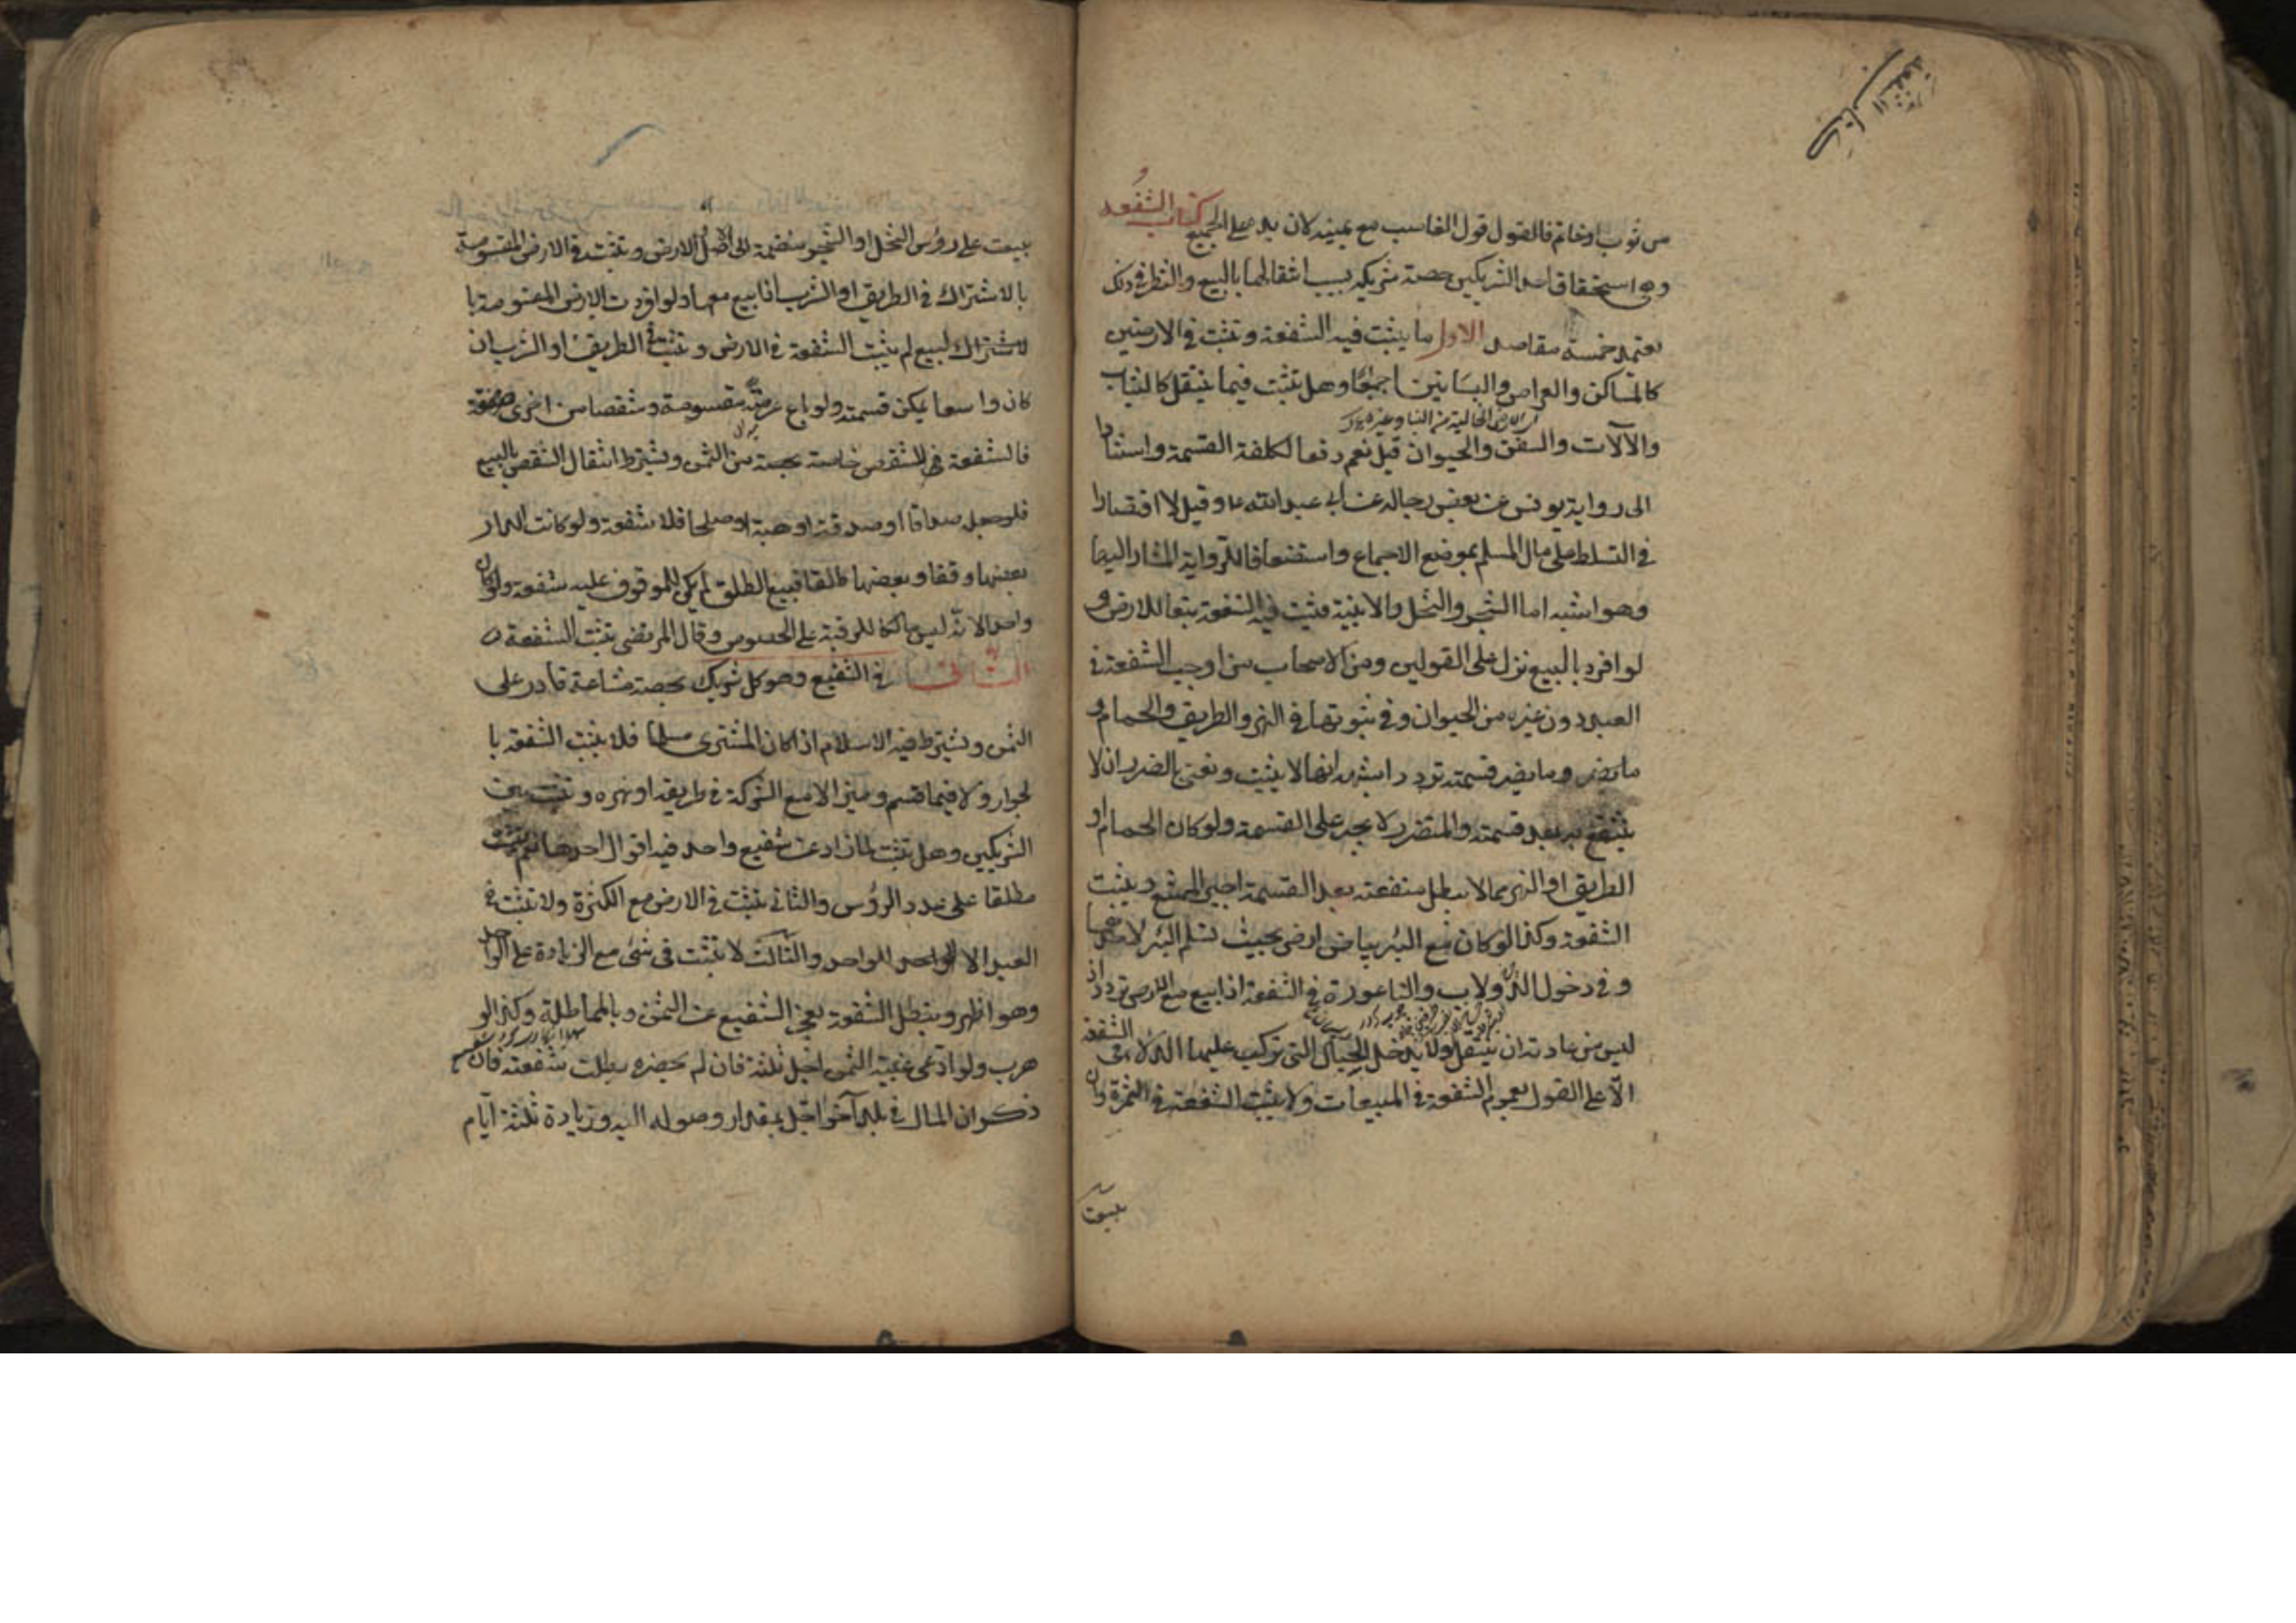 كتاب الشفعة
من ثوب او خاتم فالقول قول الغاصب مع يمينه لان يده على الجميع كتاب الشفعة
وهى استحقاق احد الشريكين حصة شريكه بسبب انتقالها بالبيع والنظر فى ذلك
يعتمد خمسة مقاصد الاول ما يثبت فيه الشفعة وتثبت فى الارضين
كالمساكن والعراص والبساتين اجماعا وهل تثبت فيما ينتقل كالثياب
والآلات والسفن والحيوان قيل نعم دفعا لكلفة القسمة واستنادا
الى رواية يونس عن بعض رجاله عن ابى عبد الله ع وقيل لا اقتصارا
فى التسلط على مال المسلم بموضع الاجماع واستضعافا للرواية المشار اليها
وهو اشبه اما الشجر والنخل والابنية فتثبت فيه الشفعة تبعا للارض و
لو افرد بالبيع نزل على القولين ومن الاصحاب من اوجب الشفعة فى
العبد دون غيره من الحيوان وفى ثبوتها فى النهر والطريق والحمام و
ما يضر قسمته تردد اشبه انها لا يثبت ونعنى بالضرر ان لا
ينتفع به بعد قسمته والمتضرر لا يجبر على القسمة ولو كان الحمام او
الطريق او النهر مما لا يبطل منفعته بعد القسمة اجبر الممتنع ويثبت
الشفعة وكذا لو كان مع البئر بياض ارض بحيث تسلم البئر لاحدهما
وفى دخول الدولاب والناعورة فى الشفعة اذا بيع مع الارض تردد اذ
ليس من عادته ان ينتقل ولا يدخل الحبال التى تركب عليها الدلاء فى الشفعة
الا على القول بعموم الشفعة فى المبيعات ولا يثبت الشفعة فى الثمرة وان
بيعت
بيعت على رؤس النخل او الشجر منضمة الى الاصل والارض وتثبت فى الارض المقسومة
بالاشتراك فى الطريق او الشرب اذا بيع معها ولو افردت الارض المقسومة با
لاشتراك لبيع لم يثبت الشفعة فى الارض وتثبت فى الطريق او الشرب ان
كان واسعا يمكن قسمته ولو باع عرصة مقسومة وشقصا من اخرى صفقة
فالشفعة فى الشقص خاصة بحصته من الثمن ويشترط انتقال الشقص بالبيع
فلو جعله صداقا او صدقة او هبة او صلحا فلا شفعة ولو كانت الدار
بعضها وقفا وبعضها طلقا فبيع الطلق لم يكن للموقوف عليه شفعة ولو كان
واحدا لانه ليس مالكا للرقبة على الخصوص وقال المرتضى تثبت الشفعة
الثانى فى الشفيع وهو كل شريك بحصة مشاعة قادر على
الثمن ويشترط فيه الاسلام اذا كان المشترى مسلما فلا يثبت الشفعة با
لجوار ولا فيما قسم وميز الا مع الشركة فى طريقه او نهره وتثبت بين
الشريكين وهل تثبت لما زاد عن شفيع واحد فيه اقوال احدها نعم يثبت
مطلقا على عدد الرؤس والثانى تثبت فى الارض مع الكثرة ولا تثبت فى
العبد الا للواحد والثالث لا تثبت فى شئ مع الزيادة على الواحد
وهو اظهر وتبطل الشفعة بعجز الشفيع عن الثمن وبالمماطلة وكذا لو
هرب ولو ادعى غيبة الثمن اجل ثلثة فان لم يحضره بطلت شفعته فان
ذكر ان المال فى بلد آخر اجل بمقدار وصوله اليه وزيادة ثلثة ايام